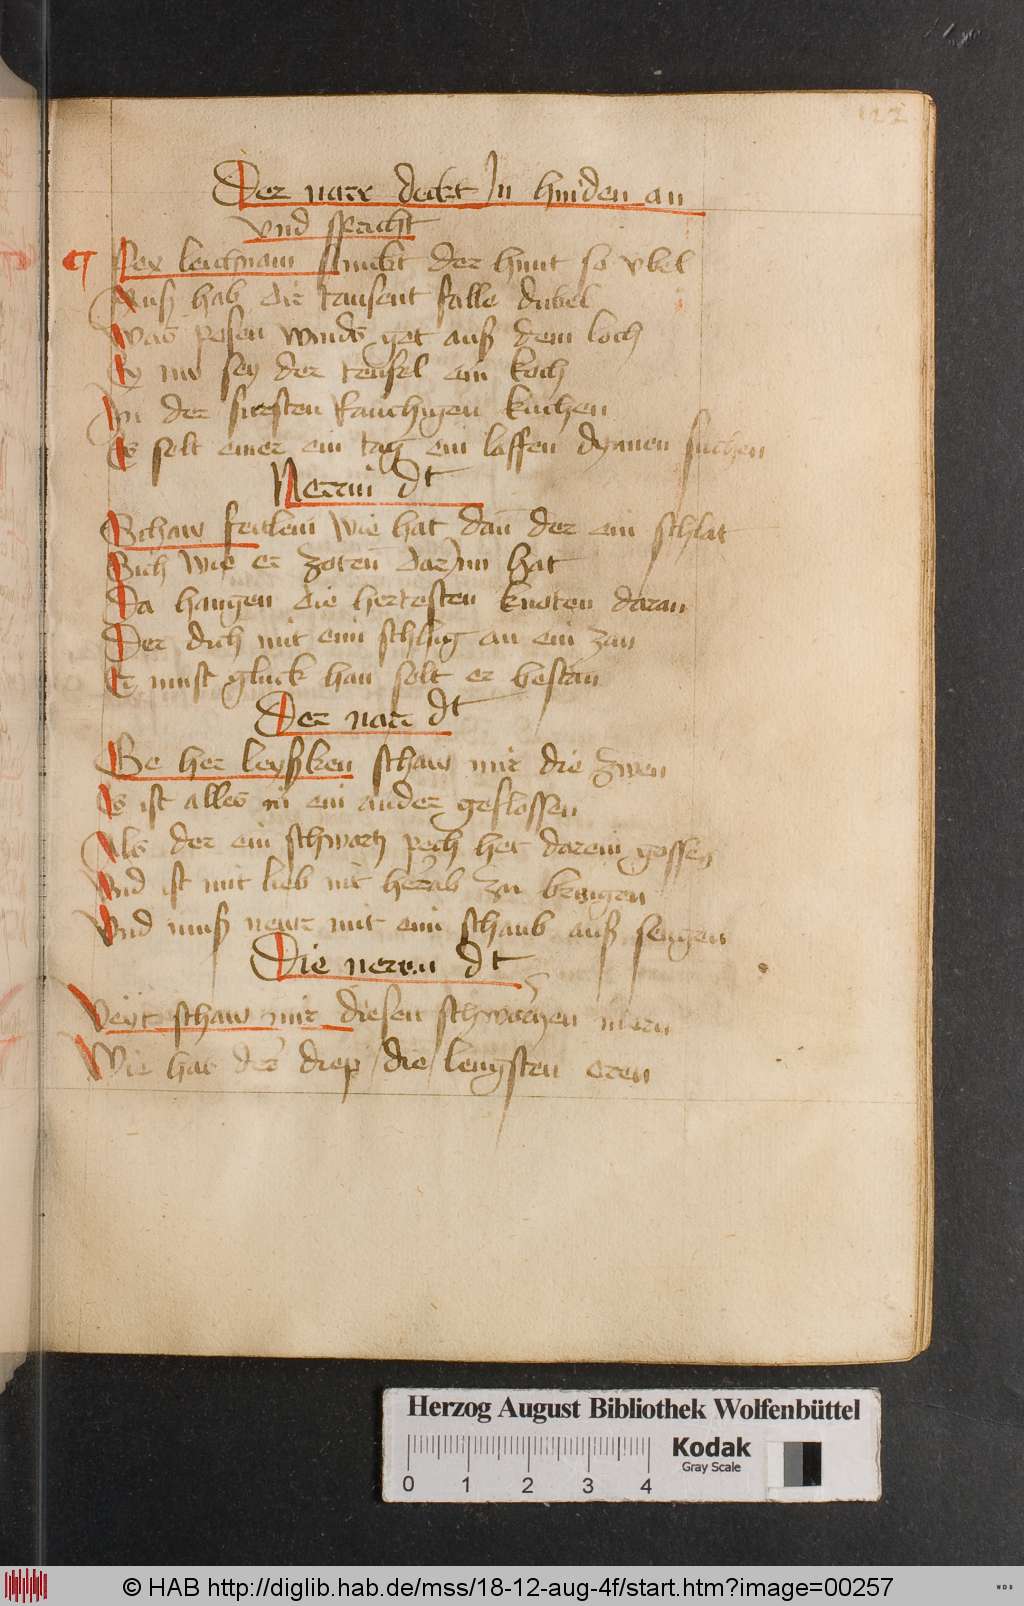 122
Der narr deckt In hinden an
vnd spricht
Der leichnam stinckt der hunt so vbel
Auß hab dir tausent falle dubel
Was posen winds get auß dem loch
Ey nu sey der teufel ein koch
In der sursten rauchigen kuchen
Es solt einer ein tag ein loffen dynnen suchen
Nerrin dt
Schaw freulein wie hat dan der ein schlat
Sich wie er zoten darInn hat
Da hangen die hertesten knoten daran
Der dich mit eim schlug an ein zan
Er must gluck han solt er bestan
Der narr dt
Se her leyßken schaw mir die zwen
Es ist alles in ein ander geflossen
Als der ein schwartz pech het darein gossen
Vnd ist mit lieb nit herab zu bringen
Vnd muß neur mit eim schaub auß sengen
Die nerrin dt
Veyt schaw mir diesen schwartzen morn
Wie hat der diep die lengsten oren
Herzog August Bibliothek Wolfenbüttel
Kodak
Gray Scale
0 1 2 3 4
© HAB http://diglib.hab.de/mss/18-12-aug-4f/start.htm?image=00257